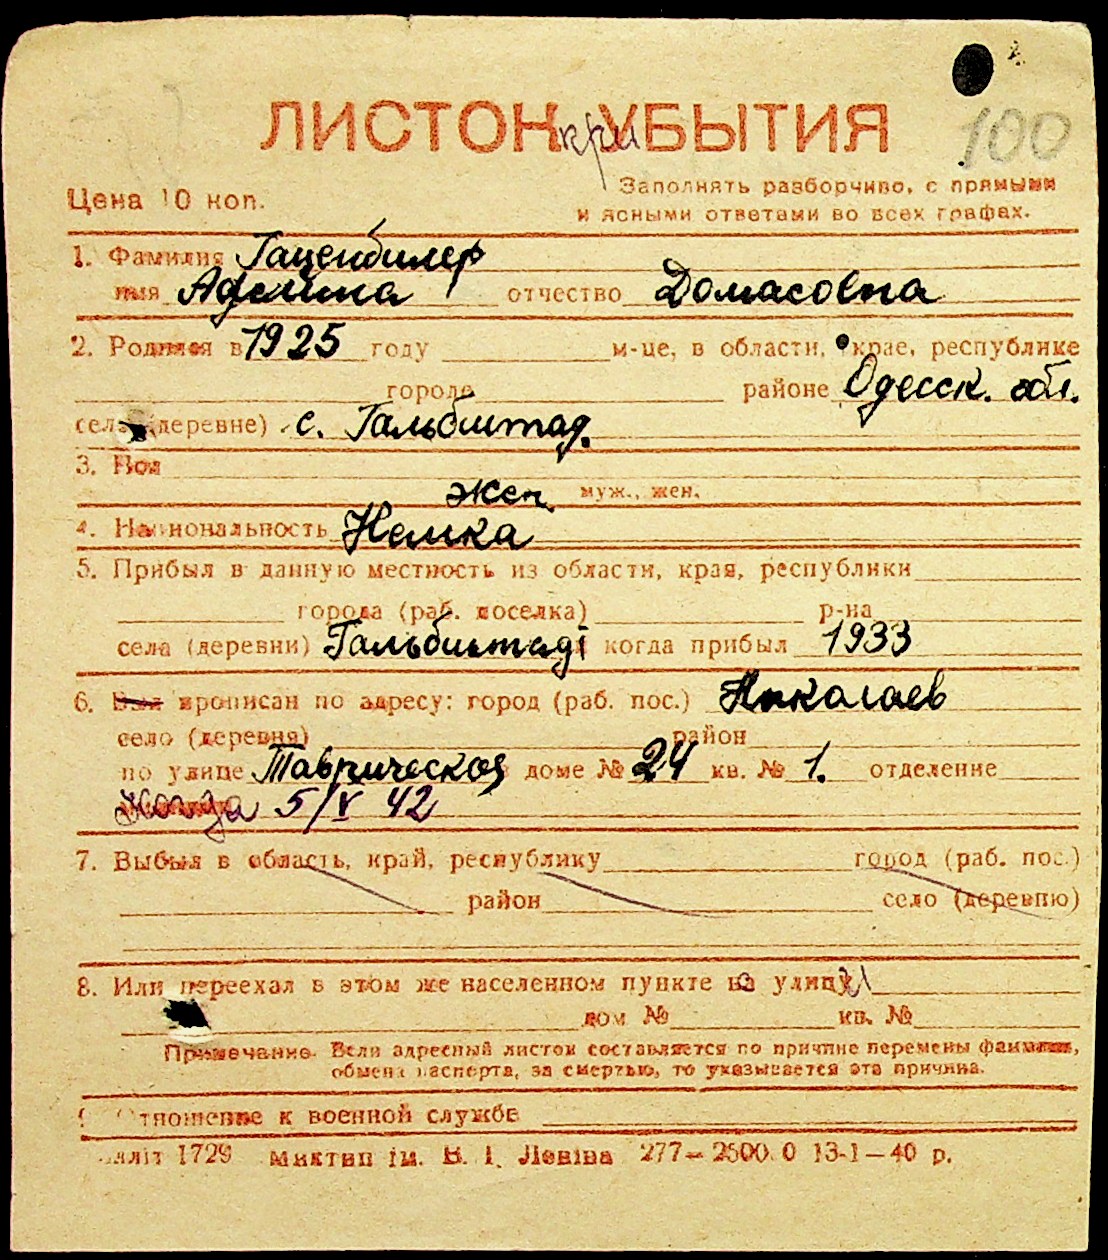 100
ЛИСТОК при УБЫТИЯ
Цена 10 коп.
Заполнять разборчиво, с прямыми
и ясными ответами во всех графах.
1. Фамилия Гаценбилер
имя Аделина отчество Домасовна
2. Родился в 1925 году м-це, в области, крае, республике
городе районе Одесск. обл.
села (деревне) с. Гальбштад.
3. Пол
жен. муж., жен.
4. Национальность Немка
5. Прибыл в данную местность из области, края, республики
города (раб. поселка) р-на
села (деревни) Гальбштаді когда прибыл 1933
6. Был прописан по адресу: город (раб. пос.) Николаев
село (деревня) район
по улице Таврической доме № 24 кв. № 1. отделение
Когда 5/V 42
7. Выбыл в область, край, республику город (раб. пос.)
район село (деревню)
8. Или переехал в этом же населенном пункте на улицу
дом № кв. №
Примечание. Если адресный листок составляется по причине перемены фамилии,
обмена паспорта, за смертью, то указывается эта причина.
Отношение к военной службе
1729 Миктип ім. В. І. Леніна 277—2500.0 13-1—40 р.